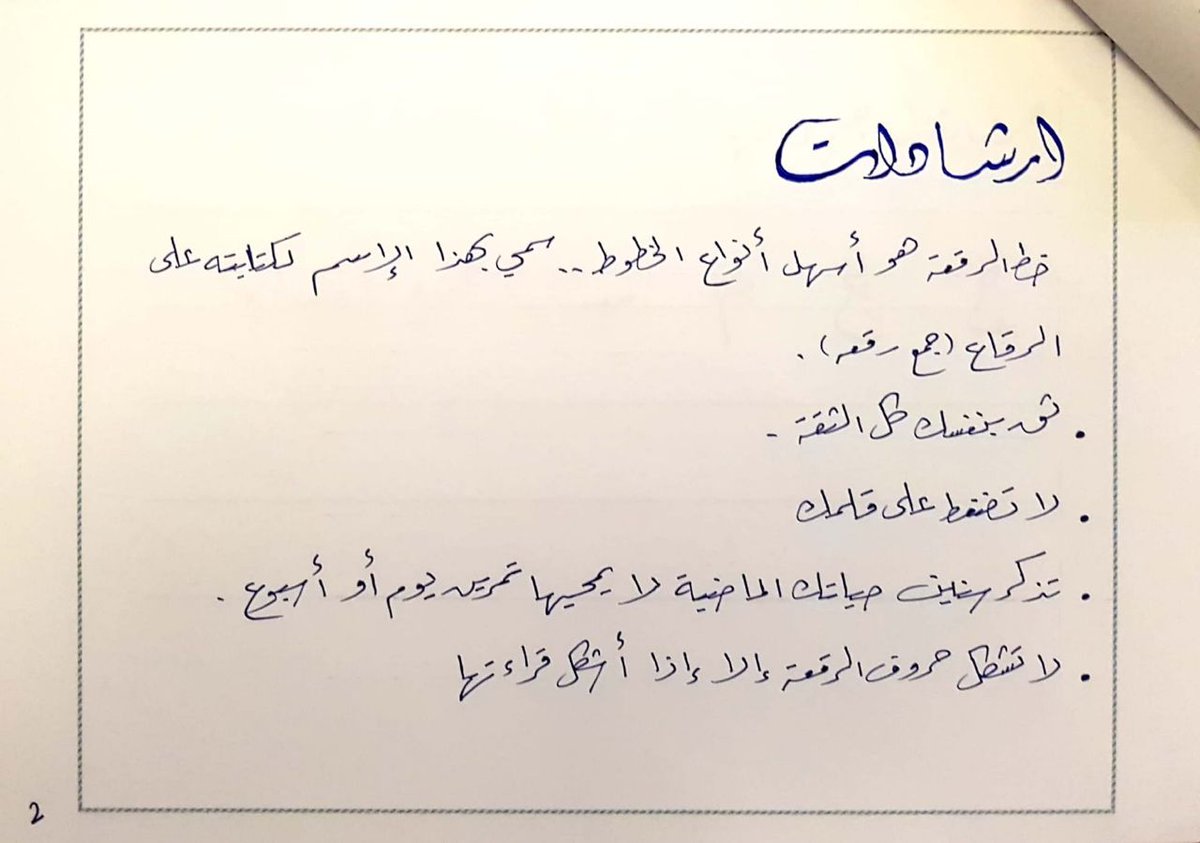 ارشادات
خط الرقعة هو أسهل أنواع الخطوط .. سمي بهذا الإسم لكتابته على
الرقاع (جمع رقعه) .
• ثق بنفسك كل الثقة -
• لا تضغط على قلمك
• تذكر سنين حياتك الماضية لا يمحيها تمرين يوم أو أسبوع .
• لا تشكل حروف الرقعة إلا إذا أشكل قراءتها
2